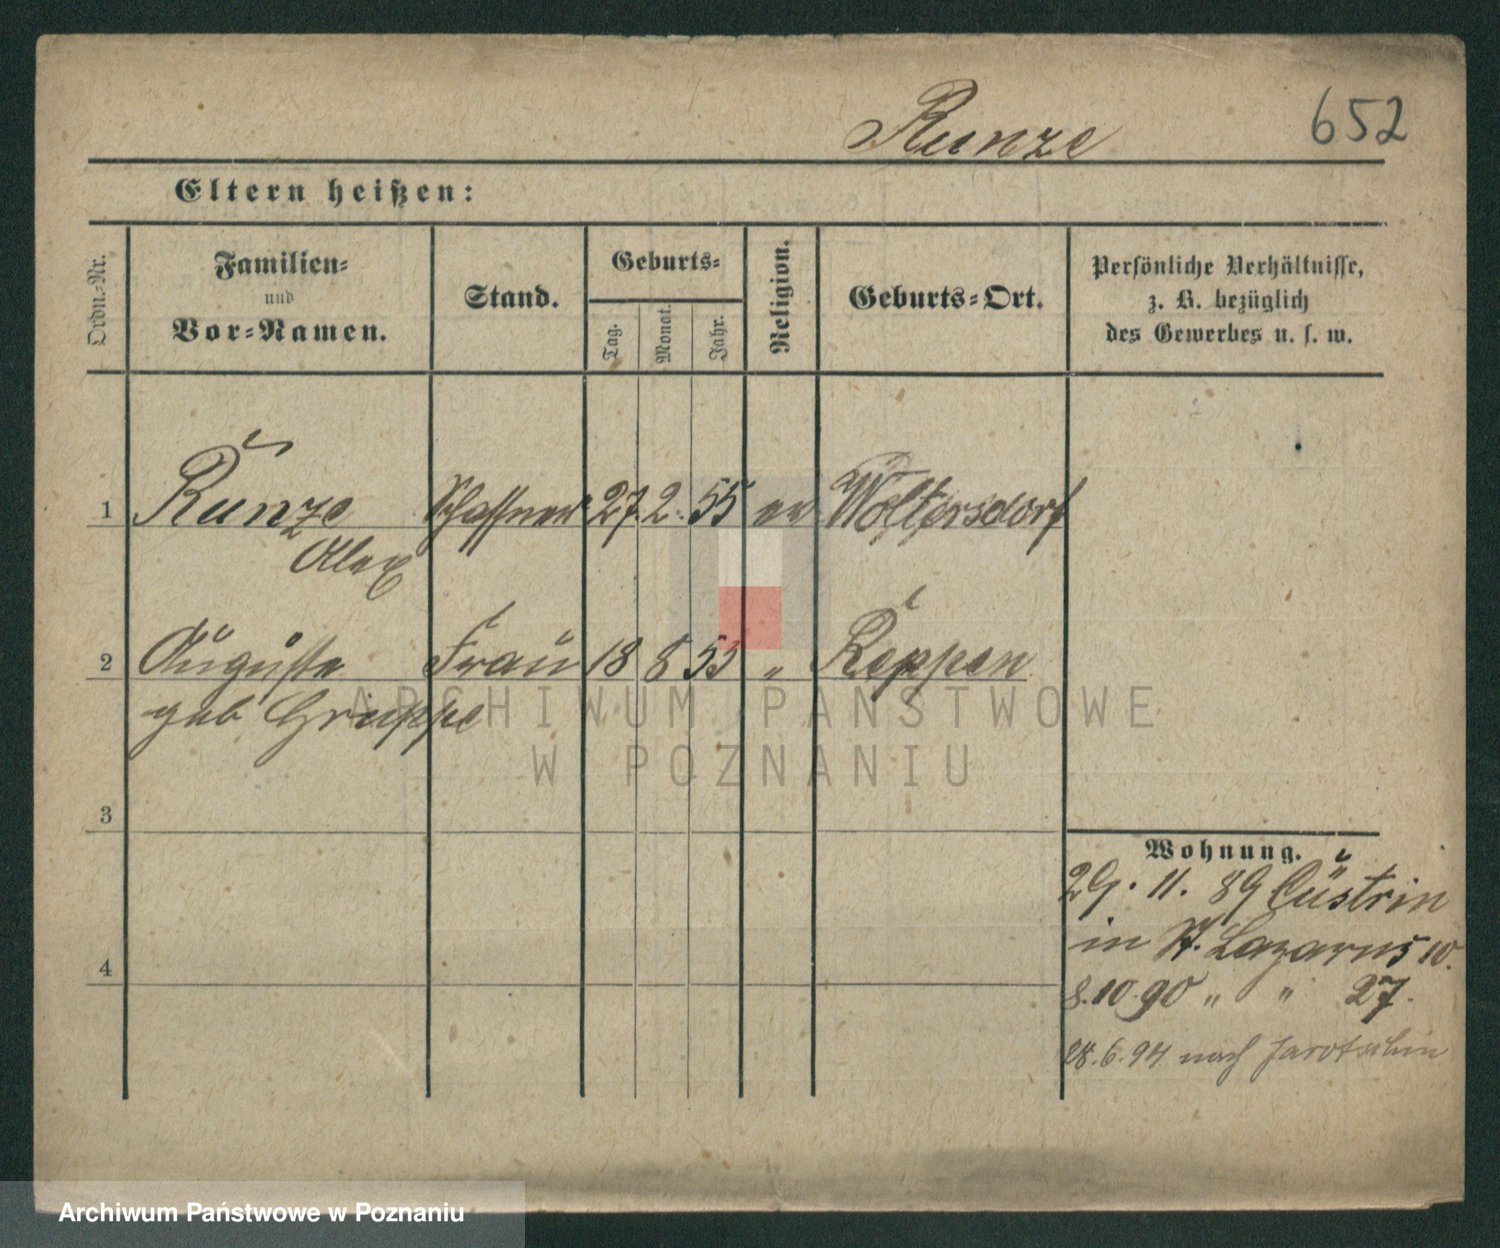 Runze 652
Eltern heißen:
Ordn.-Nr.
Familien-
und
Vor-Namen.
Stand.
Geburts-
Tag.
Monat.
Jahr.
Religion.
Geburts-Ort.
Persönliche Verhältnisse,
z. B. bezüglich
des Gewerbes u. s. w.
1 Runze Schaffner 27. 2. 55 ev Woltersdorf
Alex
2 Auguste Frau 18 8 53 " Reppen
geb Gruppe
ARCHIWUM PAŃSTWOWE
W POZNANIU
3
4
Wohnung.
29. 11. 89 Cüstrin
in St. Lazarus 10.
8.10.90 " " 27.
28.6.94 nach Jarotschin
Archiwum Państwowe w Poznaniu